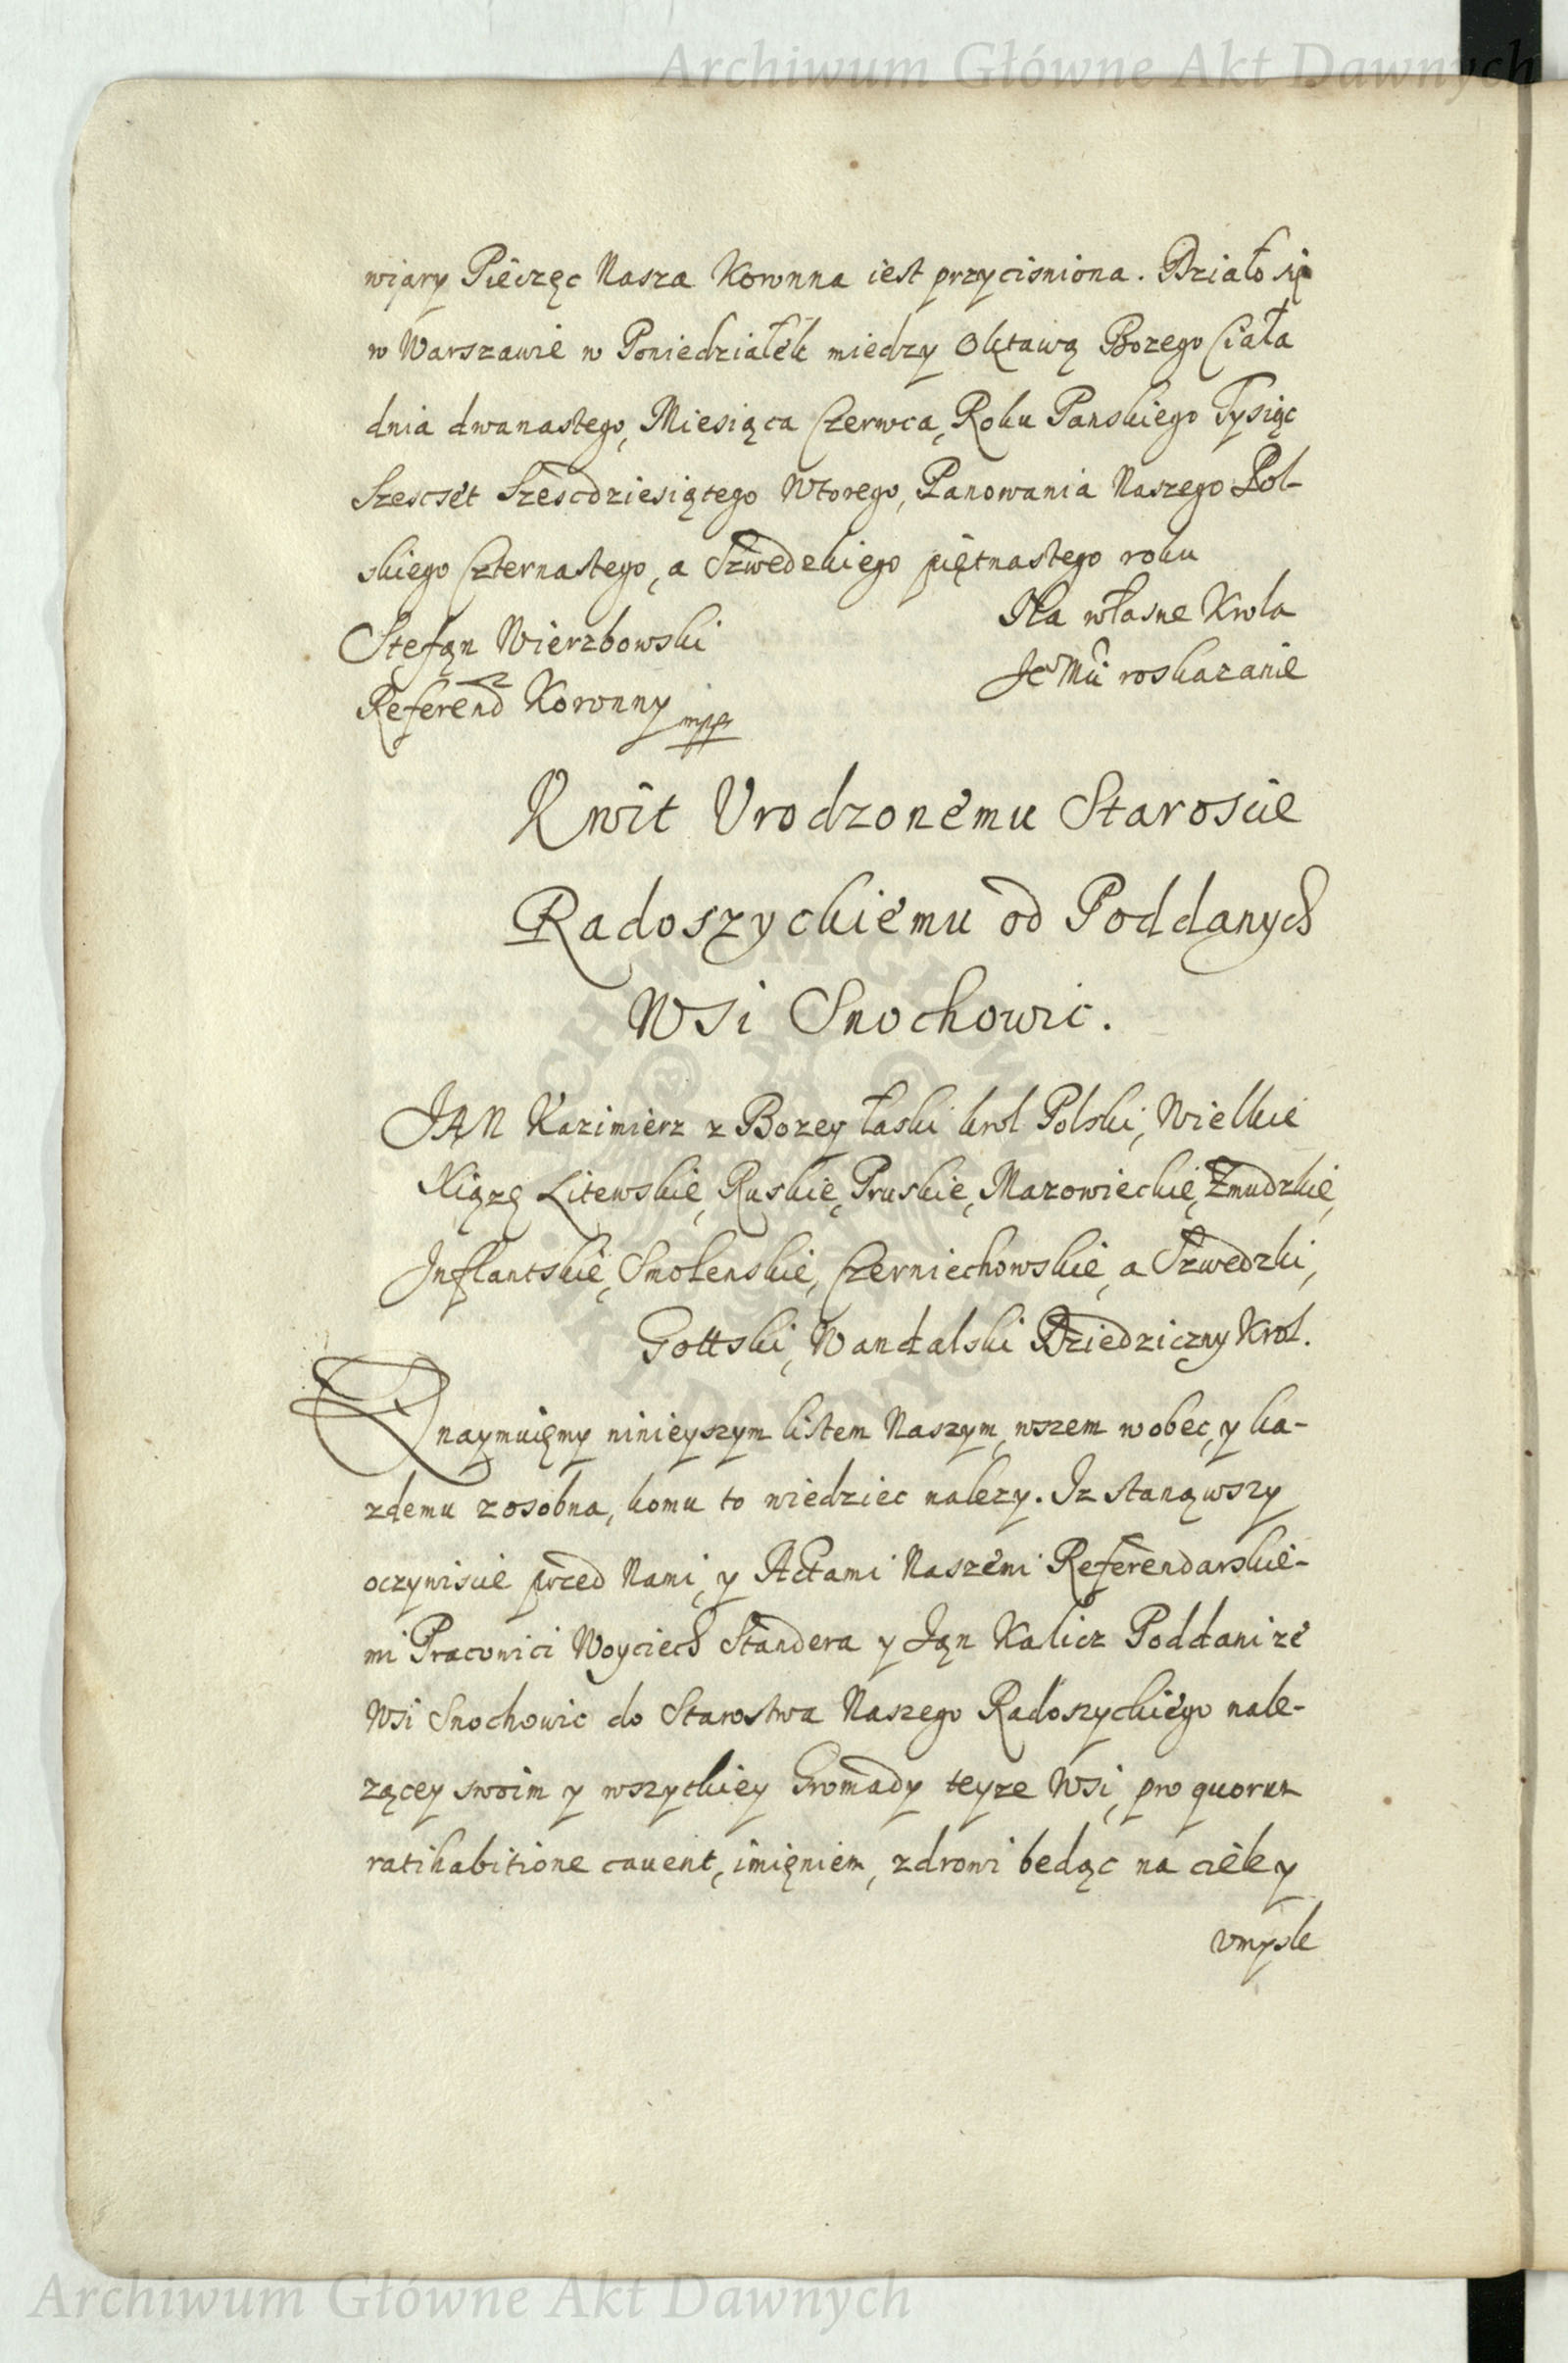 Archiwum Główne Akt Dawnych
wjary Pieczęc Nasza Koronna iest przycisniona. Działo się
w Warszawie w Poniedziałek miedzy Oktawą Bozego Ciała
dnia dwanastego, Miesiąca Czerwca, Roku Panskiego Tysiąc
Szescset Szescdziesiątego Wtorego, Panowania Naszego Pol-
skiego Czternastego, a Szwedckiego piętnastego roku
Na własne Krola
Stefan Wierzbowski
Je Mci roskazanie
Referend Koronny mpp
Kwit Vrodzonemu Staroscie
Radoszyckiemu od Poddanych
Wsi Snochowic.
JAN Kazimierz z Bozey łaski krol Polski, Wielkie
Xiązę Litewskie, Ruskie, Pruskie, Mazowieckie, Zmudzkie,
Jnflantskie, Smolenskie, Czerniechowskie, a Szwedzki,
Gottski, Wandalski Dziedziczny Krol.
Znaymuięmy ninieyszym listem Naszym, wszem wobec, y ka-
zdemu zosobna, komu to wiedziec nalezy. Jz stanąwszy
oczywiscie przed Nami, y Actami Naszemi Referendarskie-
mi Pracowici Woyciech Standera y Jan Kalicz Poddani ze
Wsi Snochowic do Starostwa Naszego Radoszyckiego nale-
zącey swoim y wszytkiey Gromady teyze Wsi, pro quorum
ratihabitione cauent, imięniem, zdrowi bedąc na ciele y
vmysle
Archiwum Główne Akt Dawnych